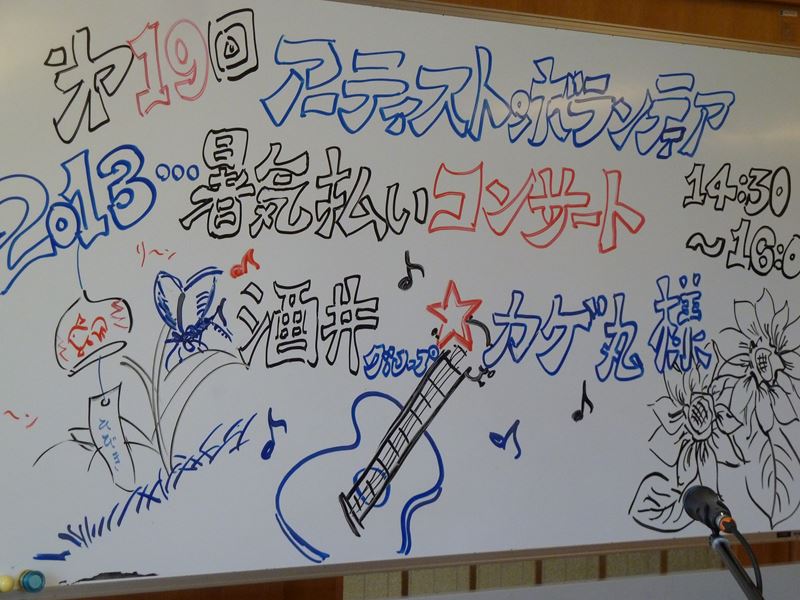 第19回 アーティスト・ボランティア
2013・・・暑気払いコンサート
14:30
〜16:0
り〜ン
酒井グループ☆カゲ丸様